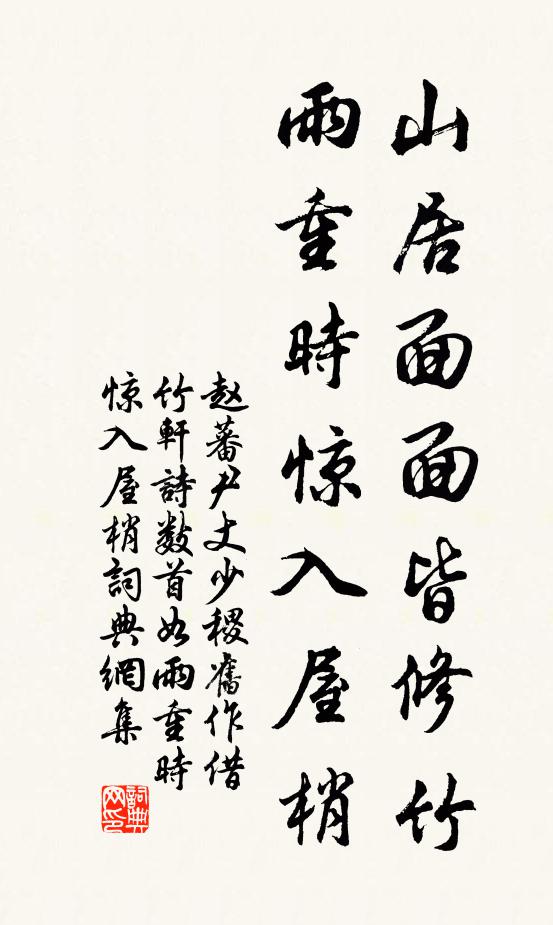 山居面面皆修竹
雨重時惊入屋梢
赵蕃尹丈少稷舊作借
竹軒詩数首如雨重時
惊入屋梢詞典網集
詞典网印